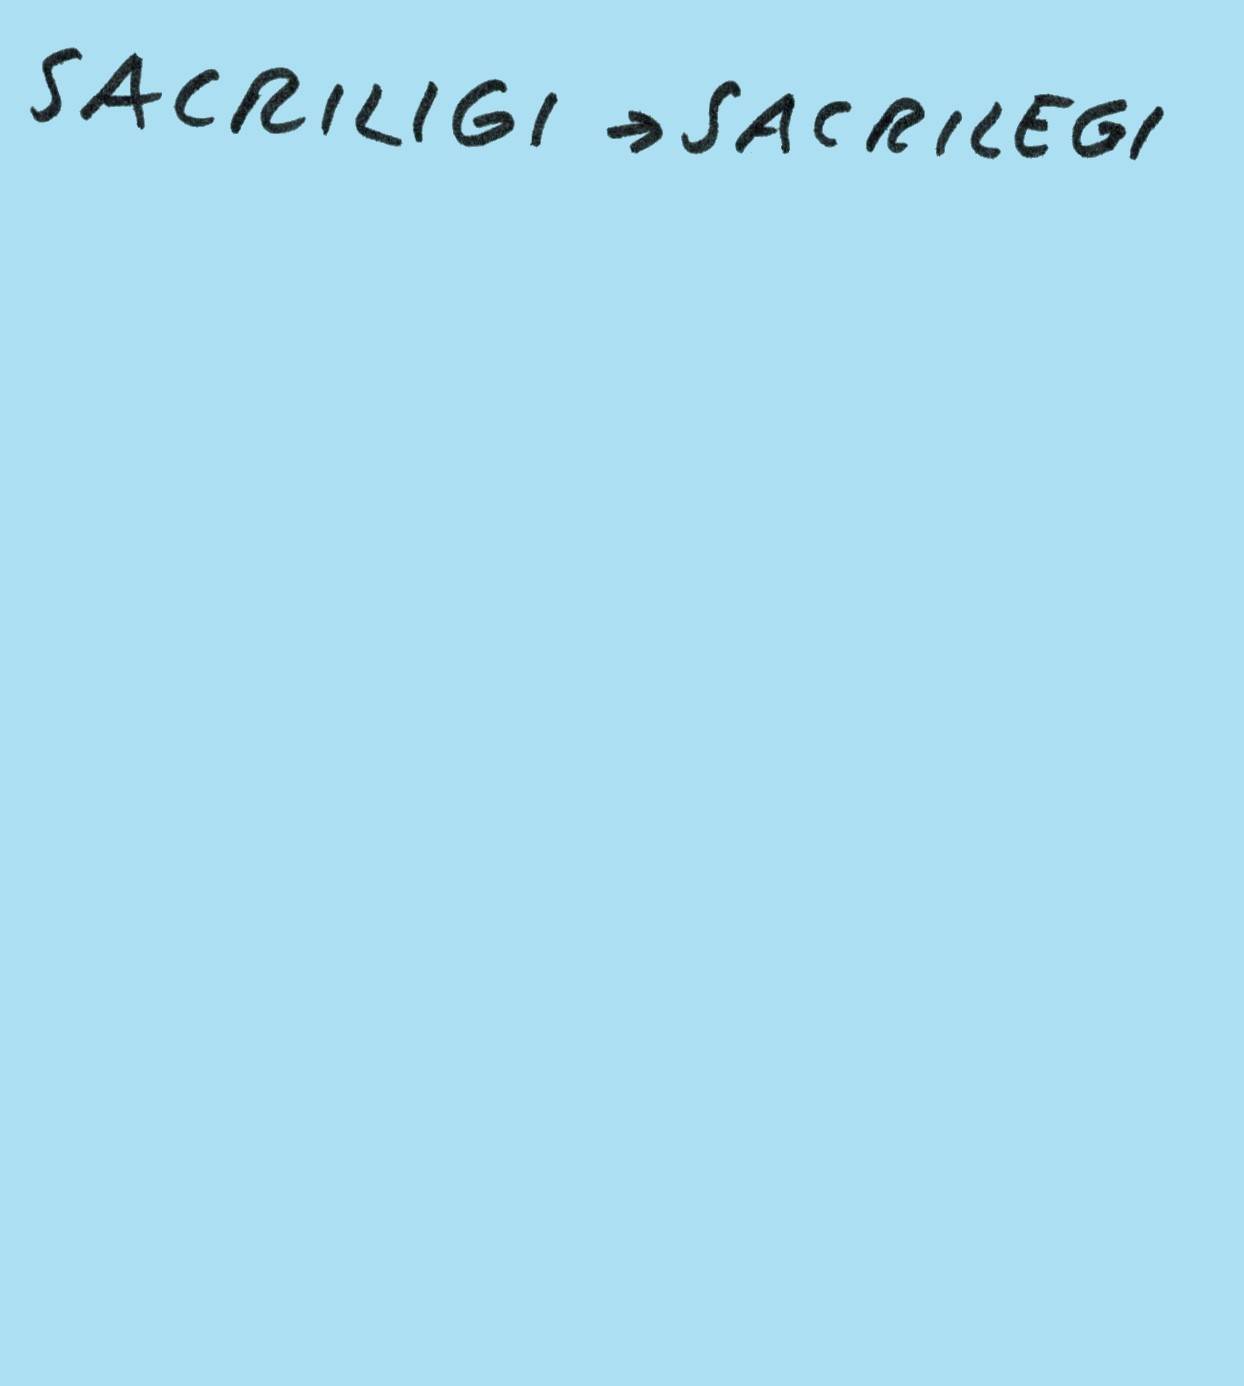 SACRILIGI → SACRILEGI